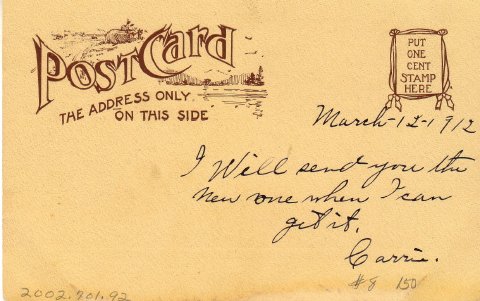 PostCard
THE ADDRESS ONLY
ON THIS SIDE
PUT
ONE
CENT
STAMP
HERE
March-12-1912
I Will send you the
new one when I can
get it.
Carrie.
#8 150
2002.701.92